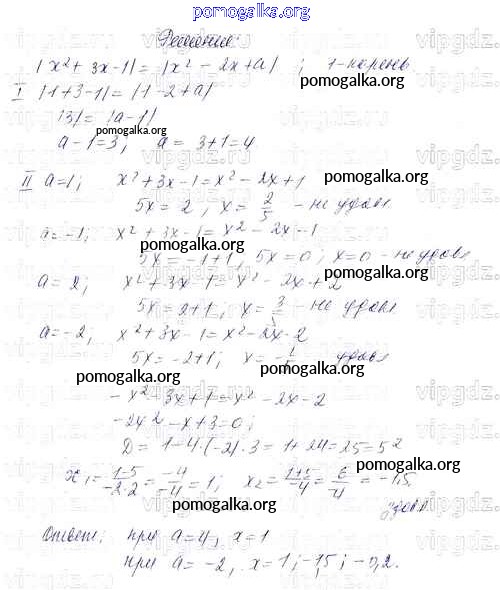 pomogalka.org
Решение:
|x² + 3x - 1| = |x² - 2x + a| ; 1 - корень
I |1 + 3 - 1| = |1 - 2 + a|
|3| = |a - 1|
pomogalka.org
a - 1 = 3; a = 3 + 1 = 4
II a = 1; x² + 3x - 1 = x² - 2x + 1 pomogalka.org
5x = 2, x = 2/5 - не удовл
a = -1; x² + 3x - 1 = x² - 2x - 1
pomogalka.org
5x = -1 + 1, 5x = 0; x = 0 - не удовл
pomogalka.org
a = 2; x² + 3x - 1 = x² - 2x + 2
5x = 2 + 1; x = 3/5 - не удовл
a = -2, x² + 3x - 1 = x² - 2x - 2
5x = -2 + 1; x = -1/5 удовл
pomogalka.org pomogalka.org
-x² - 3x + 1 = x² - 2x - 2
-2x² - x + 3 = 0;
D = 1 - 4·(-2)·3 = 1 + 24 = 25 = 5²
pomogalka.org
x₁ = (1-5)/(-2·2) = -4/-4 = 1; x₂ = (1+5)/-4 = 6/-4 = -1,5
pomogalka.org
Ответ: при a = 4, x = 1
при a = -2, x = 1; -1,5; -0,2.
pomogalka.org